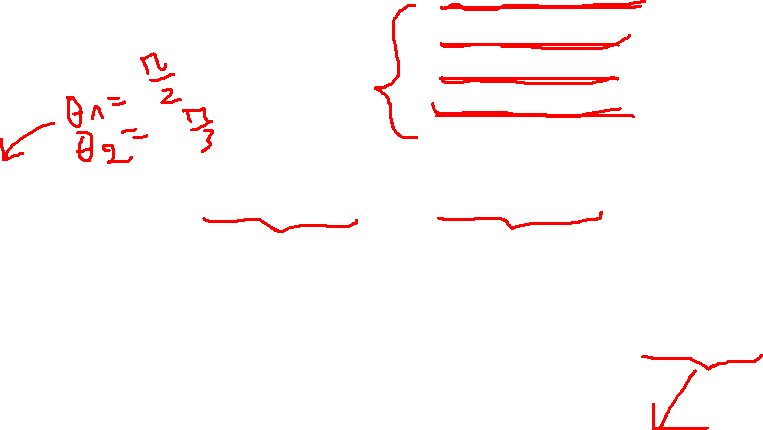 θ1= π/2
θ2= π/3